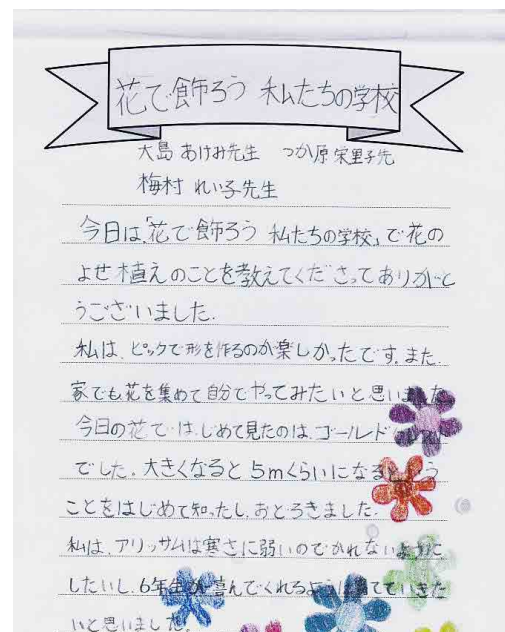 花で飾ろう 私たちの学校
大島 あけみ先生 つか原 栄里子先
梅村 れい子先生
今日は「花で飾ろう 私たちの学校」で花の
よせ植えのことを教えてくださってありがと
うございました.
私は、ピックで形を作るのが楽しかったです。また、
家でも花を集めて自分でやってみたいと思いました
今日の花ではじめて見たのは、ゴールド
でした。大きくなると5mくらいになる
ことをはじめて知ったし、おどろきました.
私は、アリッサムは寒さに弱いのでかれないように
したいし、6年生が喜んでくれるように育てていきた
いと思いました。